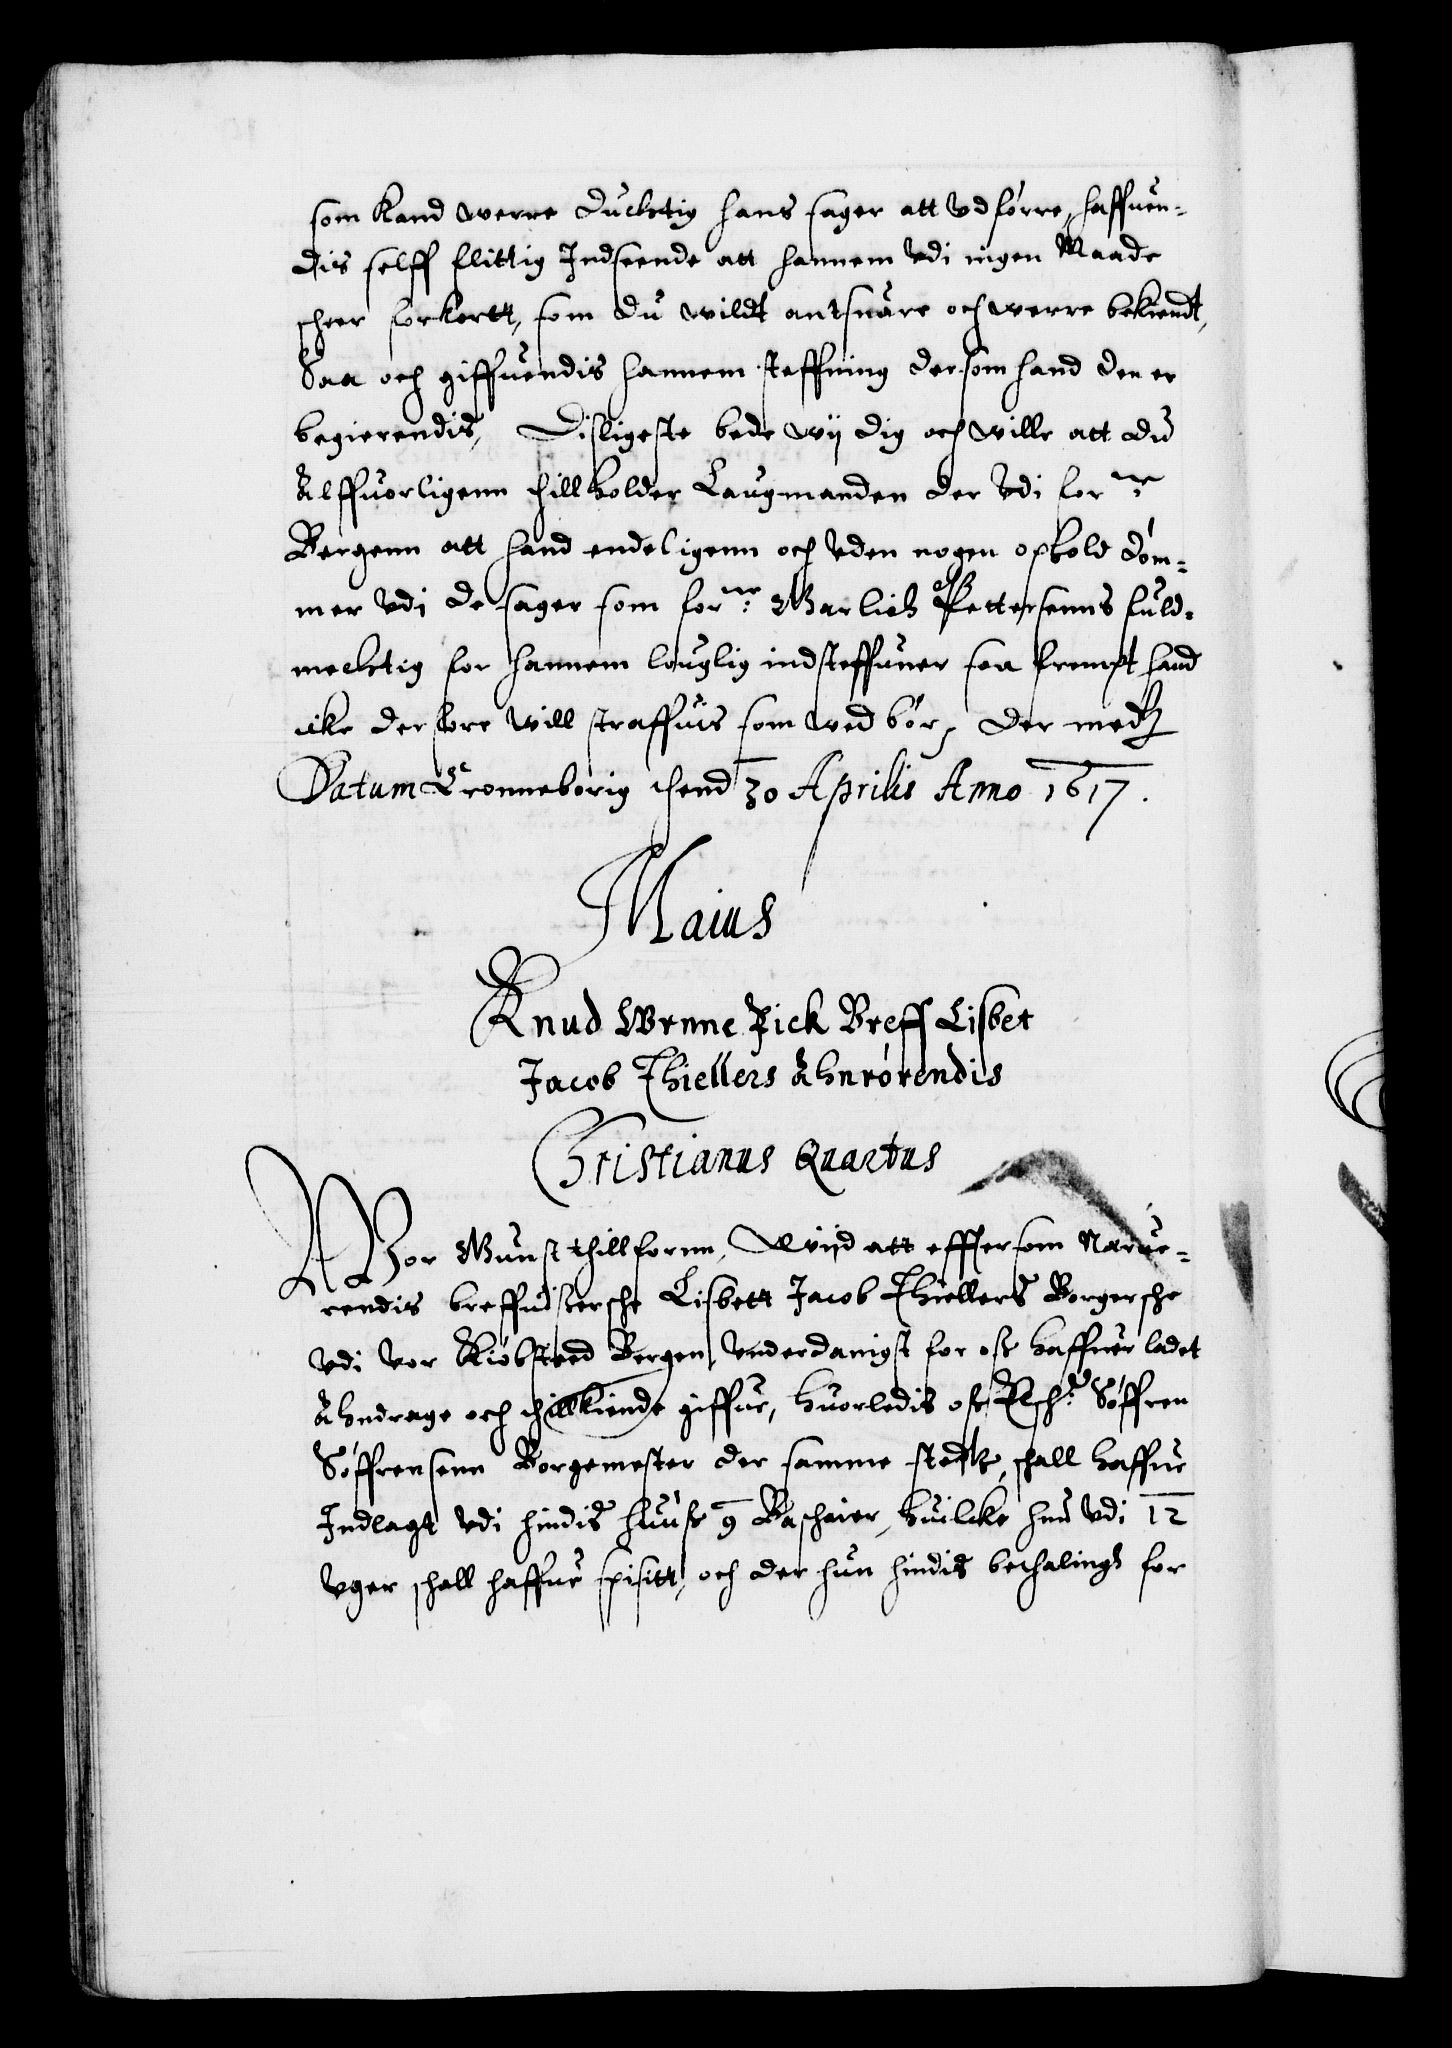 som kand werre ducktig hans sager att vdførre, haffuen-
dis selff flittig Indseende att hannem vdi ingen Maade
scheer forkortt, som du wildt antsuare och werre bekiendt,
Saa och giffuendis hannem steffning dersom hand den er
begierendis, Disligeste bede wij dig och wille att du
Alffuorligenn thillholder Laugmanden der vdi forne
Bergenn att hand endeligenn och vden nogen ophold døm-
mer vdi de sager som forne Warlich Pettersenns fuld-
mecktig for hannem louglig indsteffuner saa frempt hand
icke derfore will straffuis som wed bør, Der medtz
Datum Cronneborig thend 30 Aprilis Anno 1617.
Maius
Knud Wrnne Fick Breff Lisbet
Jacob Thiellers Ahnrørendis
Christianus Quartus
Wor Gunst thillforn, Wijd att efftersom Narue-
rendis breffuisersche Lisbett Jacob Thiellers Borgersche
vdi vor Kiøbsteed Bergen, vnderdanigst for oss haffuer ladet
Ahndrage och thillkiende giffue, huorledis oss Elsch: Søffren
Søffrensenn Borgemester der samme stedtz, schall haffue
Indlagt vdi hindis huuss 9 Baschaier, huilcke hun vdi 12
vger schall haffue spisitt, och der hun hindis bethaling for